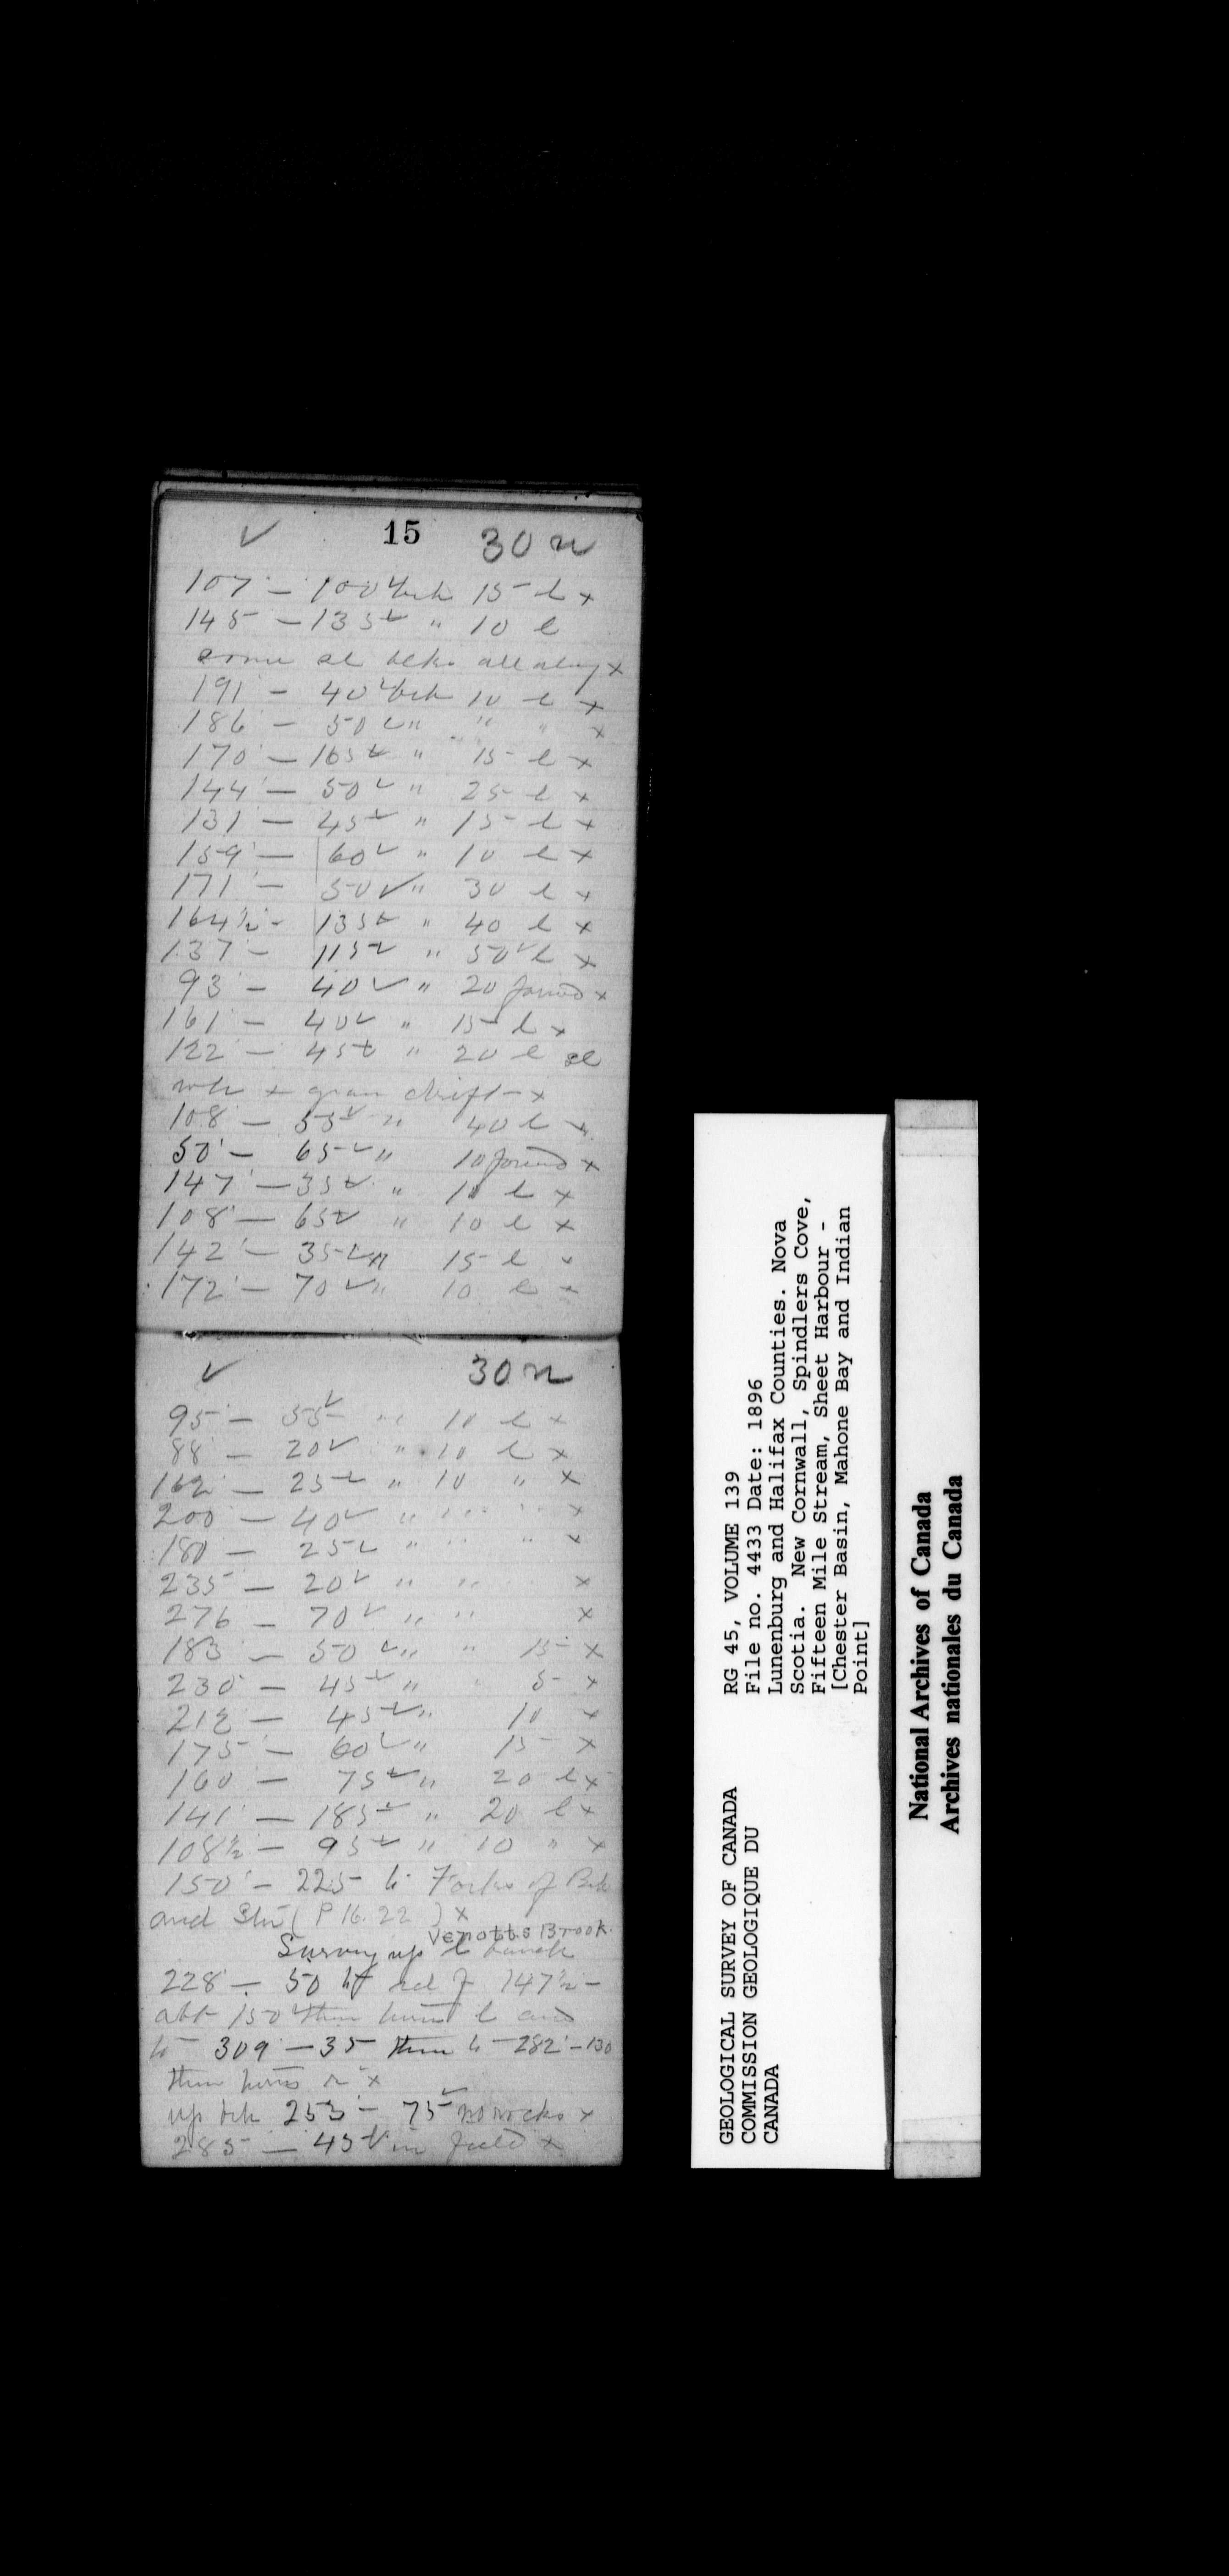 ✓ 15 30 n
107° — 100 ✓ bk 15 l x
145 — 135 ✓ " 10 l
some sl blks all along x
191° — 40 ✓ bk 10 l x
186° — 50 ✓ " " " x
170° — 165 ✓ " 15 l x
144° — 50 ✓ " 25 l x
131° — 45 ✓ " 15 l x
159° — 60 ✓ " 10 l x
171° — 50 ✓ " 30 l x
164½ - 135 ✓ " 40 l x
137° - 115 ✓ " 50 ✓ l x
93° — 40 ✓ " 20 x
161° — 40 ✓ " 15 l x
122° — 45 ✓ " 20 l sl
+ gran drift - x
108° — 55 ✓ " 40 l x
50° — 65 ✓ " 10 x
147° — 35 ✓ " 10 l x
108° — 65 ✓ " 10 l x
142° — 35 ✓ " 15 l x
172° — 70 ✓ " 10 l x
✓ 30 n
95° — 55 ✓ " 10 l x
88° — 20 ✓ " 10 l x
162° — 25 ✓ " 10 " x
200 — 40 ✓ " " " x
180 — 25 ✓ " " " x
235 — 20 ✓ " " x
276 — 70 ✓ " " x
183 — 50 ✓ " " 15 x
230° — 45 ✓ " 5 x
212 — 45 ✓ " 10 x
175° — 60 ✓ " 15 x
160° — 75 ✓ " 20 l x
141° — 185 ✓ " 20 l x
108½ — 95 ✓ " 10 " x
150° — 225 to Forks of Bk
and Str (P 16. 22) x
Venotts Brook.
Survey up l branch
228° — 50 to rd 147½ —
abt 150 then turns l and
to 309° — 35 then to 282° — 130
then turns r x
up bk 253° — 75 ✓ no rocks x
285 — 45 ✓ in field x
GEOLOGICAL SURVEY OF CANADA
COMMISSION GEOLOGIQUE DU
CANADA
RG 45, VOLUME 139
File no. 4433 Date: 1896
Lunenburg and Halifax Counties. Nova
Scotia. New Cornwall, Spindlers Cove,
Fifteen Mile Stream, Sheet Harbour -
[Chester Basin, Mahone Bay and Indian
Point]
National Archives of Canada
Archives nationales du Canada